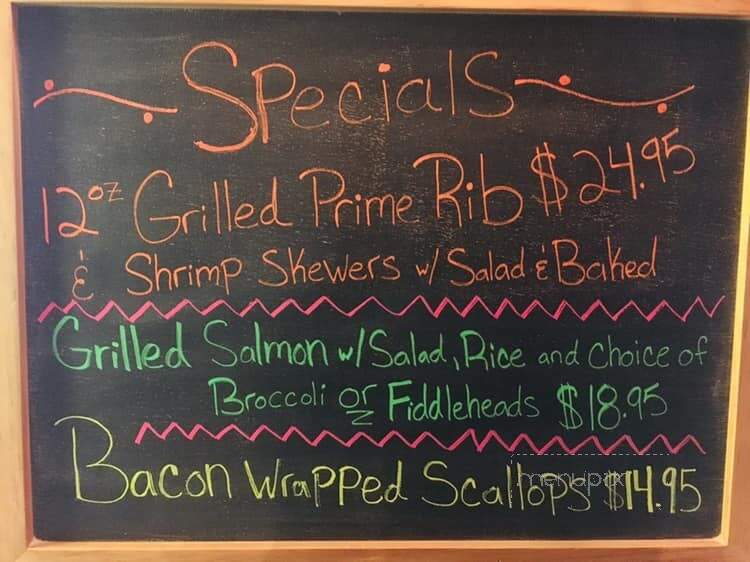 Specials
12oz Grilled Prime Rib $24.95
& Shrimp Skewers w/ Salad & Baked
Grilled Salmon w/ Salad, Rice and Choice of
Broccoli or Fiddleheads $18.95
Bacon Wrapped Scallops $14.95
menupix